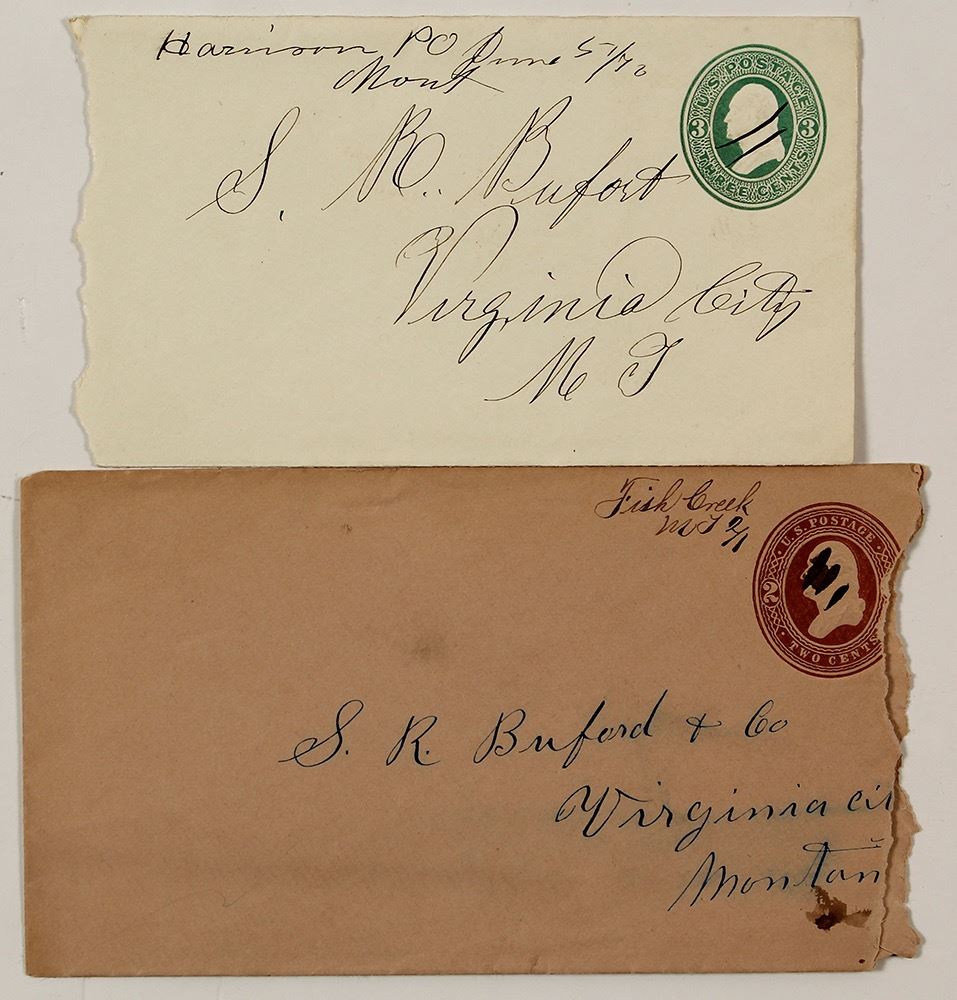 Harrison PO June 5/72
Mont
U.S. POSTAGE
3 3
THREE CENTS
S. R. Bufort
Virginia City
M T
Fish Creek
M T 2/1
U.S. POSTAGE
2
TWO CENTS
S. R. Buford & Co
Virginia cit
Montan